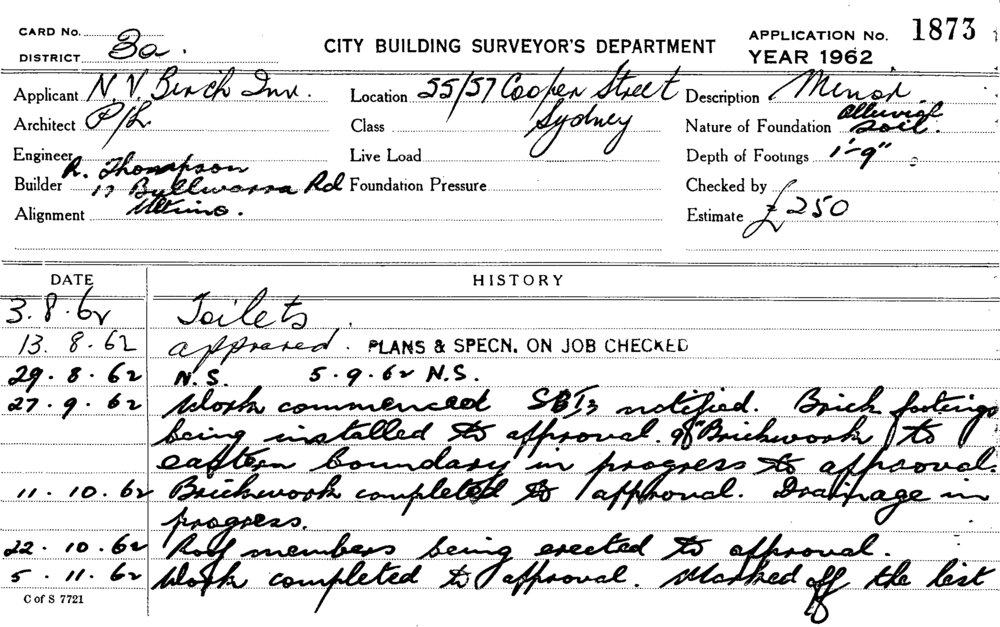 CARD No.
DISTRICT 3a.
CITY BUILDING SURVEYOR'S DEPARTMENT
APPLICATION No. 1873
YEAR 1962
Applicant N. V. Birch Inv.
Architect P/L
Engineer R. Thompson
Builder 17 Rd
Alignment Ultimo.
Location 55/57 Cooper Street
Class Sydney
Live Load
Foundation Pressure
Description Minor
Nature of Foundation Alluvial Soil.
Depth of Footings 1'-9"
Checked by
Estimate £250
DATE HISTORY
3.8.62 Toilets
13.8.62 approved. PLANS & SPECN. ON JOB CHECKED
29.8.62 N.S. 5.9.62 N.S.
27.9.62 Work commenced notified. Brick footings
being installed to approval. 9" Brickwork to
eastern boundary in progress to approval.
11.10.62 Brickwork completed to approval. Drainage in
progress.
22.10.62 Roof members being erected to approval.
5.11.62 Work completed to approval. Marked off the list
C of S 7721